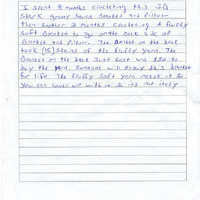 I spent 8 months crocheting this 3D
Shark granny Square Blanket and Pillow.
Then another 2 months Crocheting A fluffy
Soft Blanket to go onthe back side of
Blanket and Pillow. The Blanket on the back
took (15) Skeins of the fluffy yarn. The
Blanket on the back Just cost was $180 to
buy the yarn. Someone will enjoy this blanket
for life. The fluffy Soft yarn makes it so
you can cover up with it so its not itchy